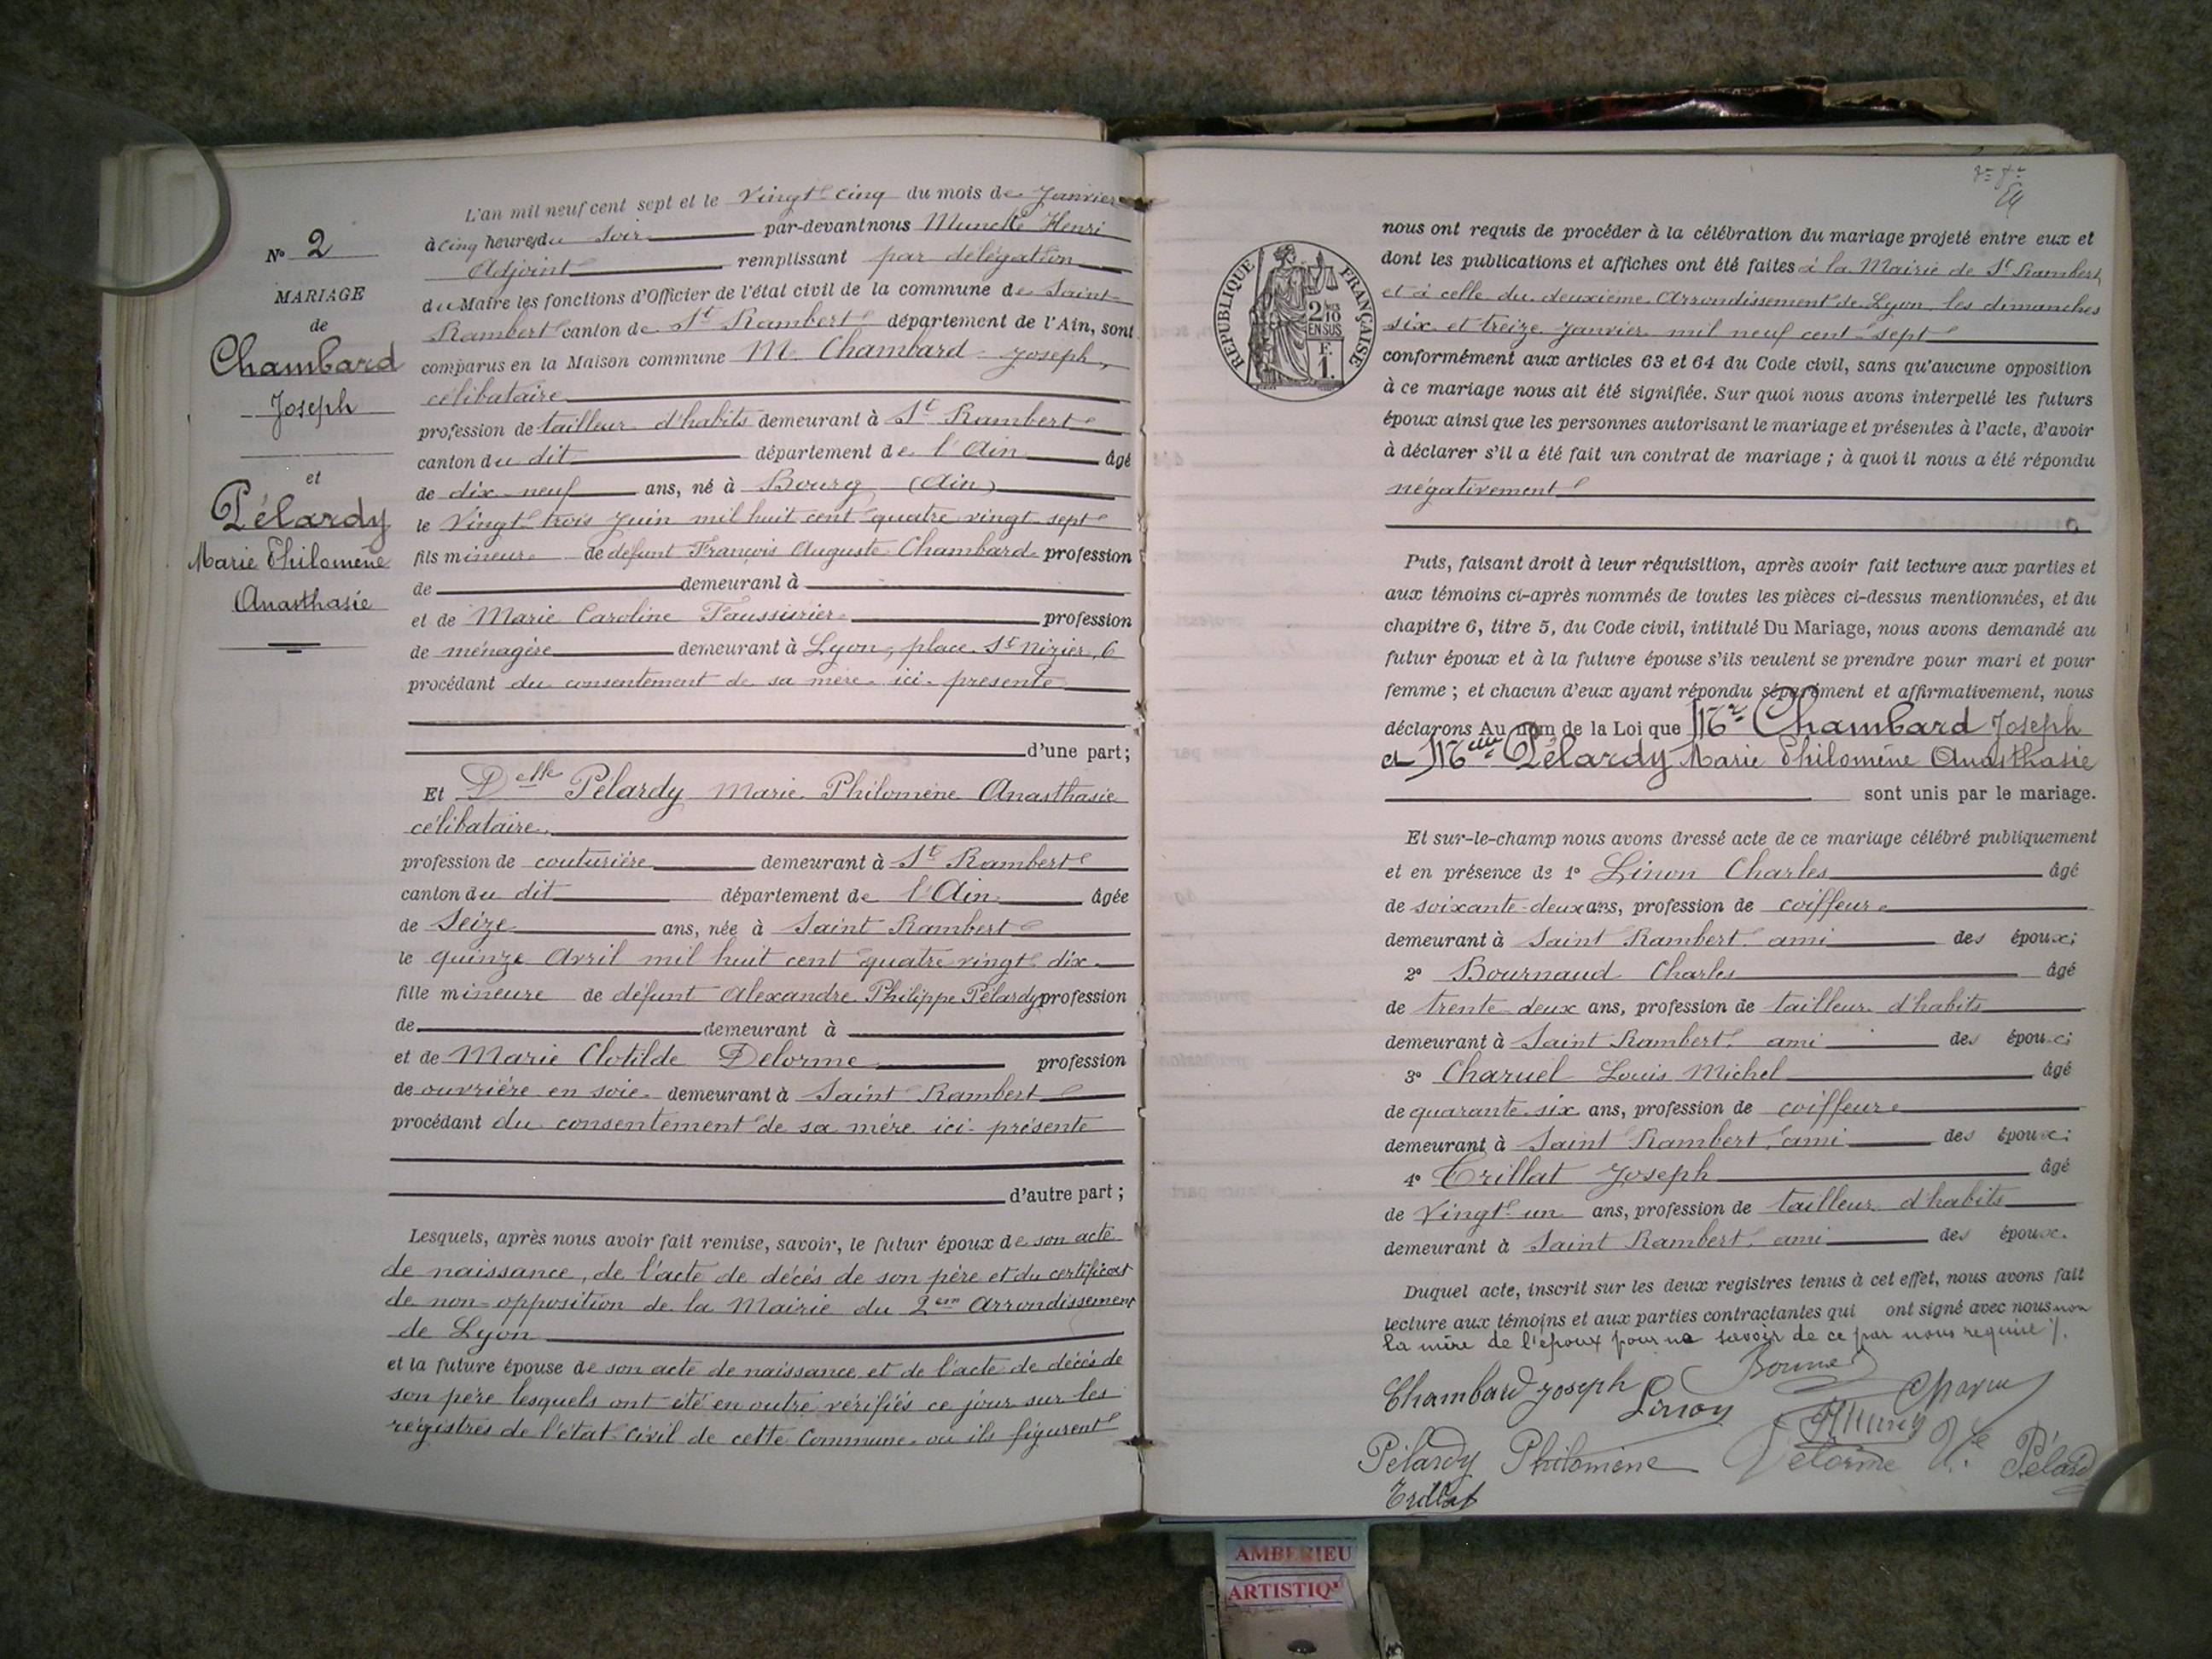 N° 2
MARIAGE
de
Chambard
Joseph
et
Pélardy
Marie Philomène
Anasthasie
L'an mil neuf cent sept et le vingt cinq du mois de Janvier
à cinq heures du soir par-devant nous Munck Henri
Adjoint remplissant par délégation
du Maire les fonctions d'Officier de l'état civil de la commune de Saint
Rambert canton de St Rambert département de l'Ain, sont
comparus en la Maison commune M. Chambard Joseph,
célibataire
profession de tailleur d'habits demeurant à St Rambert
canton du dit département de l'Ain âgé
de dix-neuf ans, né à Bourg (Ain)
le vingt trois Juin mil huit cent quatre vingt sept
fils mineur de défunt François Auguste Chambard profession
de demeurant à
et de Marie Caroline Faussurier profession
de ménagère demeurant à Lyon, place St Nizier, 6
procédant du consentement de sa mère ici présente
d'une part;
Et Delle Pélardy Marie Philomène Anasthasie
célibataire
profession de couturière demeurant à St Rambert
canton du dit département de l'Ain âgée
de seize ans, née à Saint Rambert
le quinze Avril mil huit cent quatre vingt dix
fille mineure de défunt Alexandre Philippe Pélardy profession
de demeurant à
et de Marie Clotilde Delorme profession
de ouvrière en soie demeurant à Saint Rambert
procédant du consentement de sa mère ici présente
d'autre part;
Lesquels, après nous avoir fait remise, savoir, le futur époux de son acte
de naissance, de l'acte de décès de son père et du certificat
de non-opposition de la Mairie du 2em Arrondissement
de Lyon
et la future épouse de son acte de naissance et de l'acte de décès de
son père lesquels ont été en outre vérifiés ce jour sur les
registres de l'état civil de cette Commune où ils figurent
REPUBLIQUE FRANÇAISE
2/10
EN SUS
F.
1.
nous ont requis de procéder à la célébration du mariage projeté entre eux et
dont les publications et affiches ont été faites à la Mairie de St Rambert
et à celle du deuxième Arrondissement de Lyon les dimanches
six et treize Janvier mil neuf cent sept
conformément aux articles 63 et 64 du Code civil, sans qu'aucune opposition
à ce mariage nous ait été signifiée. Sur quoi nous avons interpellé les futurs
époux ainsi que les personnes autorisant le mariage et présentes à l'acte, d'avoir
à déclarer s'il a été fait un contrat de mariage; à quoi il nous a été répondu
négativement
Puis, faisant droit à leur réquisition, après avoir fait lecture aux parties et
aux témoins ci-après nommés de toutes les pièces ci-dessus mentionnées, et du
chapitre 6, titre 5, du Code civil, intitulé Du Mariage, nous avons demandé au
futur époux et à la future épouse s'ils veulent se prendre pour mari et pour
femme; et chacun d'eux ayant répondu séparément et affirmativement, nous
déclarons Au nom de la Loi que Mr Chambard Joseph
et Melle Pélardy Marie Philomène Anasthasie
sont unis par le mariage.
Et sur-le-champ nous avons dressé acte de ce mariage célébré publiquement
et en présence de 1° Linon Charles âgé
de soixante-deux ans, profession de coiffeur
demeurant à Saint Rambert ami des époux;
2° Bournaud Charles âgé
de trente deux ans, profession de tailleur d'habits
demeurant à Saint Rambert ami des époux;
3° Charuel Louis Michel âgé
de quarante six ans, profession de coiffeur
demeurant à Saint Rambert, ami des époux;
4° Trillat Joseph âgé
de vingt-un ans, profession de tailleur d'habits
demeurant à Saint Rambert, ami des époux.
Duquel acte, inscrit sur les deux registres tenus à cet effet, nous avons fait
lecture aux témoins et aux parties contractantes qui ont signé avec nous non
la mère de l'époux pour ne savoir de ce par nous requise
Chambard Joseph
Linon
Pélardy Philomène Delorme Pélard
Trillat
AMBERIEU
ARTISTIQ